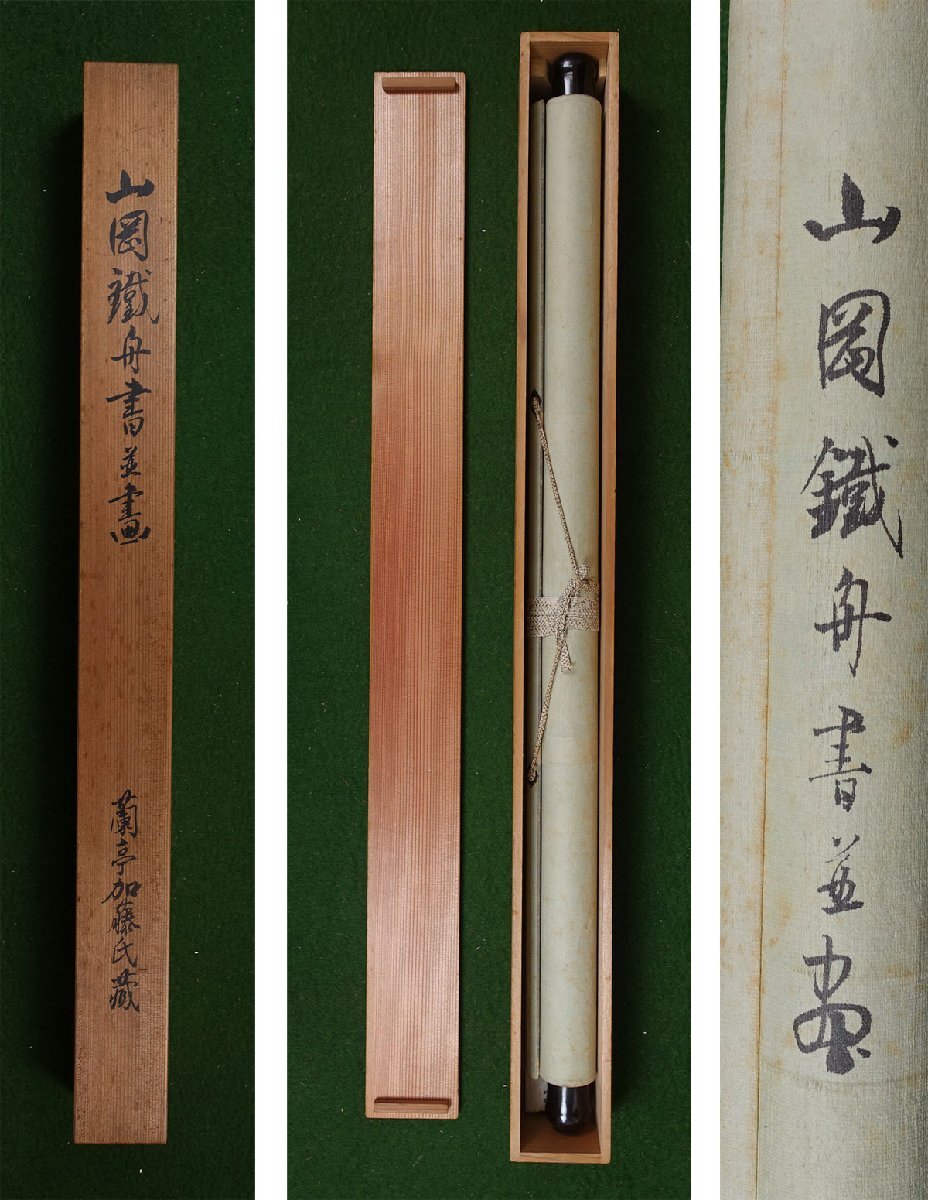 山岡鐵舟書並畫
蘭亭加藤氏藏
山岡鐵舟書並画